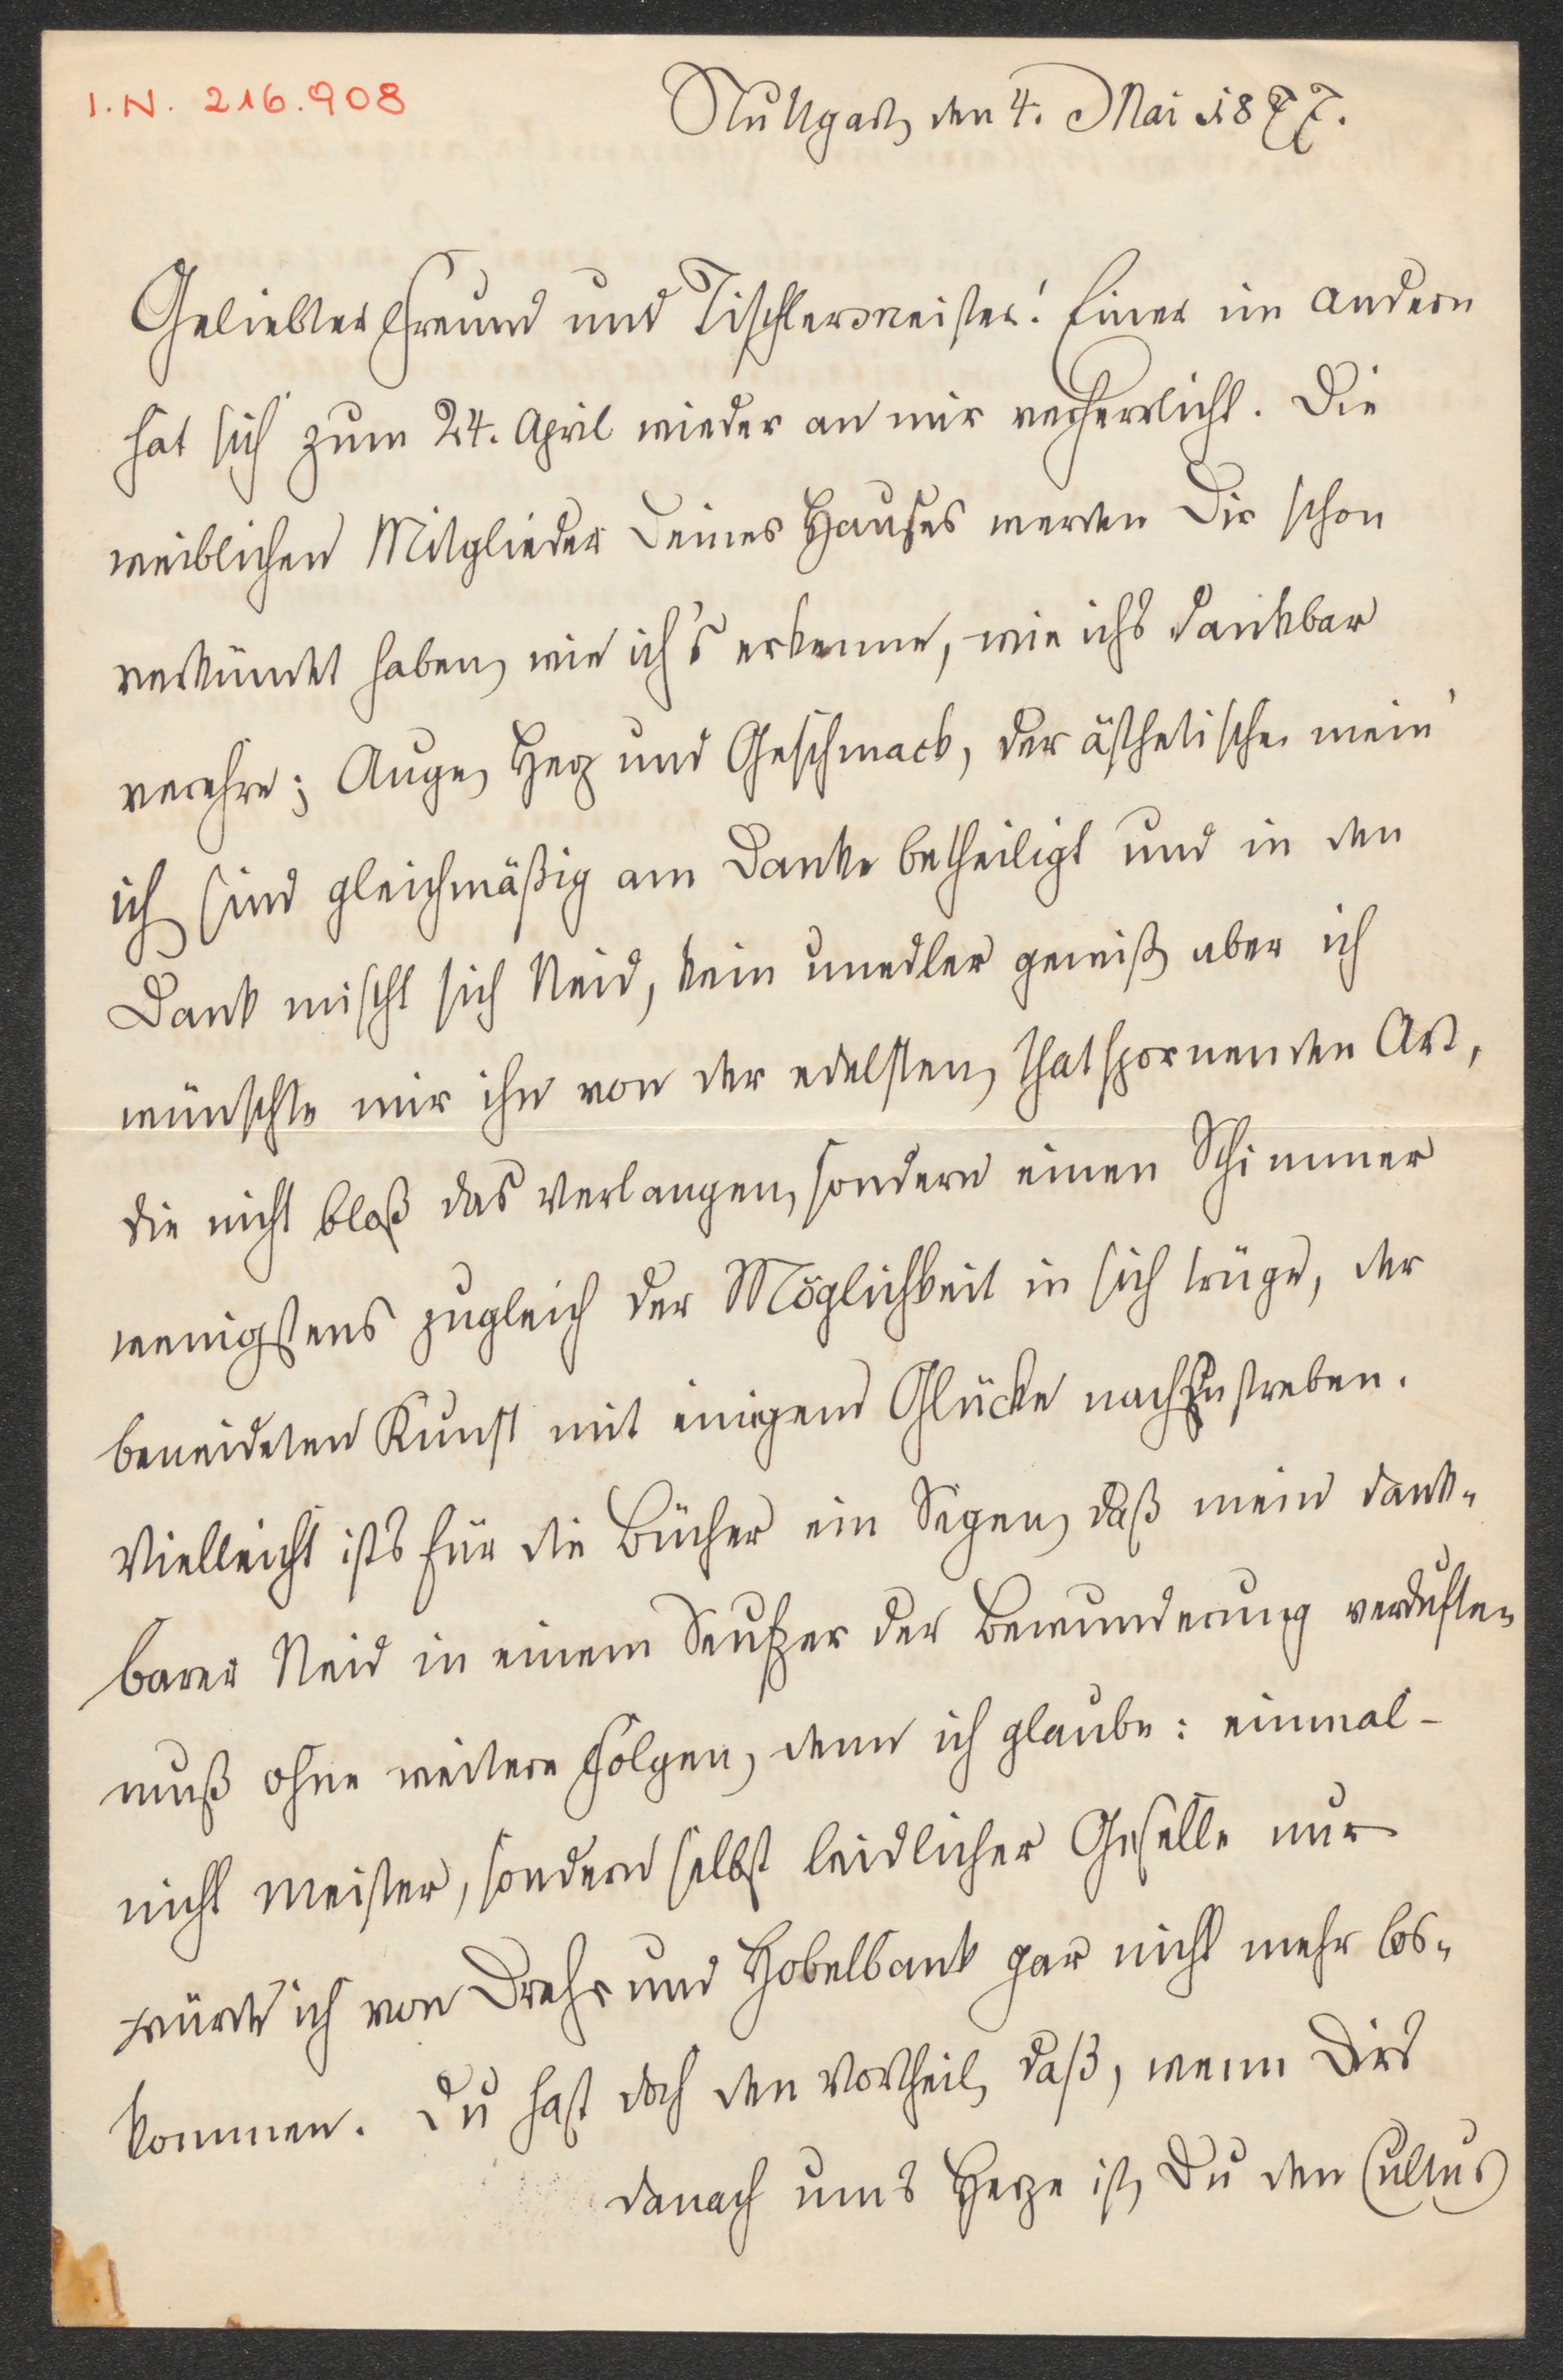 I.N. 216.908
Stuttgart, den 4. Mai 1877.
Geliebter Freund und Tischlermeister! Einer im andern
hat sich zum 24. April wieder an mir verherrlicht. Die
weiblichen Mitglieder Deines Hauses werden Dir schon
verkündet haben, wie ich's erkenne, wie ichs dankbar
verehre; Auge, Herz und Geschmack, der ästhetische mein'
ich, sind gleichmäßig am Danke betheiligt und in den
Dank mischt sich Neid, kein unedler gewiß, aber ich
wünschte mir ihn von der edelsten, thatspornenden Art,
die nicht bloß das Verlangen, sondern einen Schimmer
wenigstens zugleich der Möglichkeit in sich trüge, der
beneideten Kunst mit einigem Glücke nachzustreben.
Vielleicht ists für die Bücher ein Segen, daß mein dank-
barer Neid in einem Seufzer der Bewunderung verduften
muß ohne weitere Folgen, denn ich glaube: einmal –
nicht Meister, sondern selbst leidlicher Geselle nur –
würde ich von Dreh- und Hobelbank gar nicht mehr los-
kommen. Du hast doch den Vortheil, daß, wenn Dirs
danach ums Herze ist, Du den Cultus